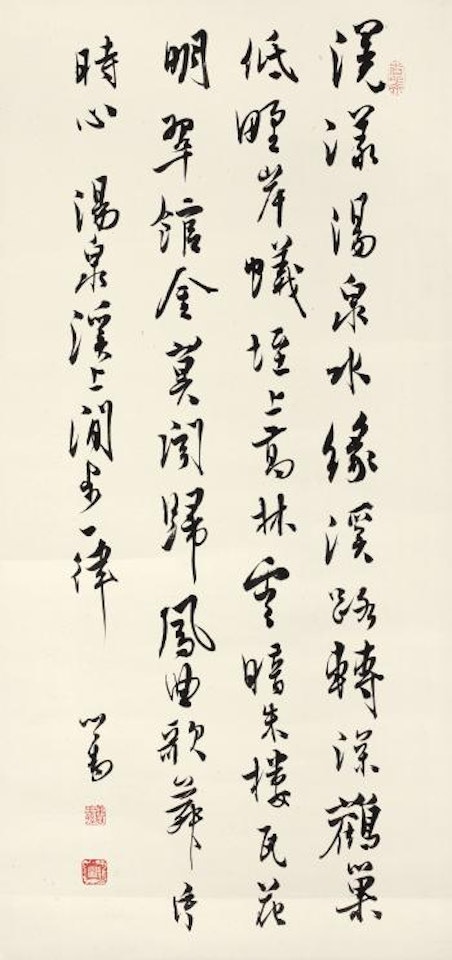 滉漾湯泉水緣溪路轉深鸛巢
低野岸蟻垤上高林雲暗朱樓瓦花
明翠館金莫聞歸鳳曲歌舞
時心 湯泉溪上閒步一律
心畬